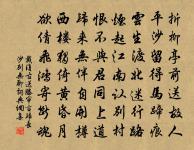 折柳亭前送故人
平沙留得馬蹄痕
雲生渡北迷行路
煙起江南認別村
恨不與君同上道
歸來無伴自開樽
西樓獨倚黃昏月
欲倩飛鴻寄斷魂